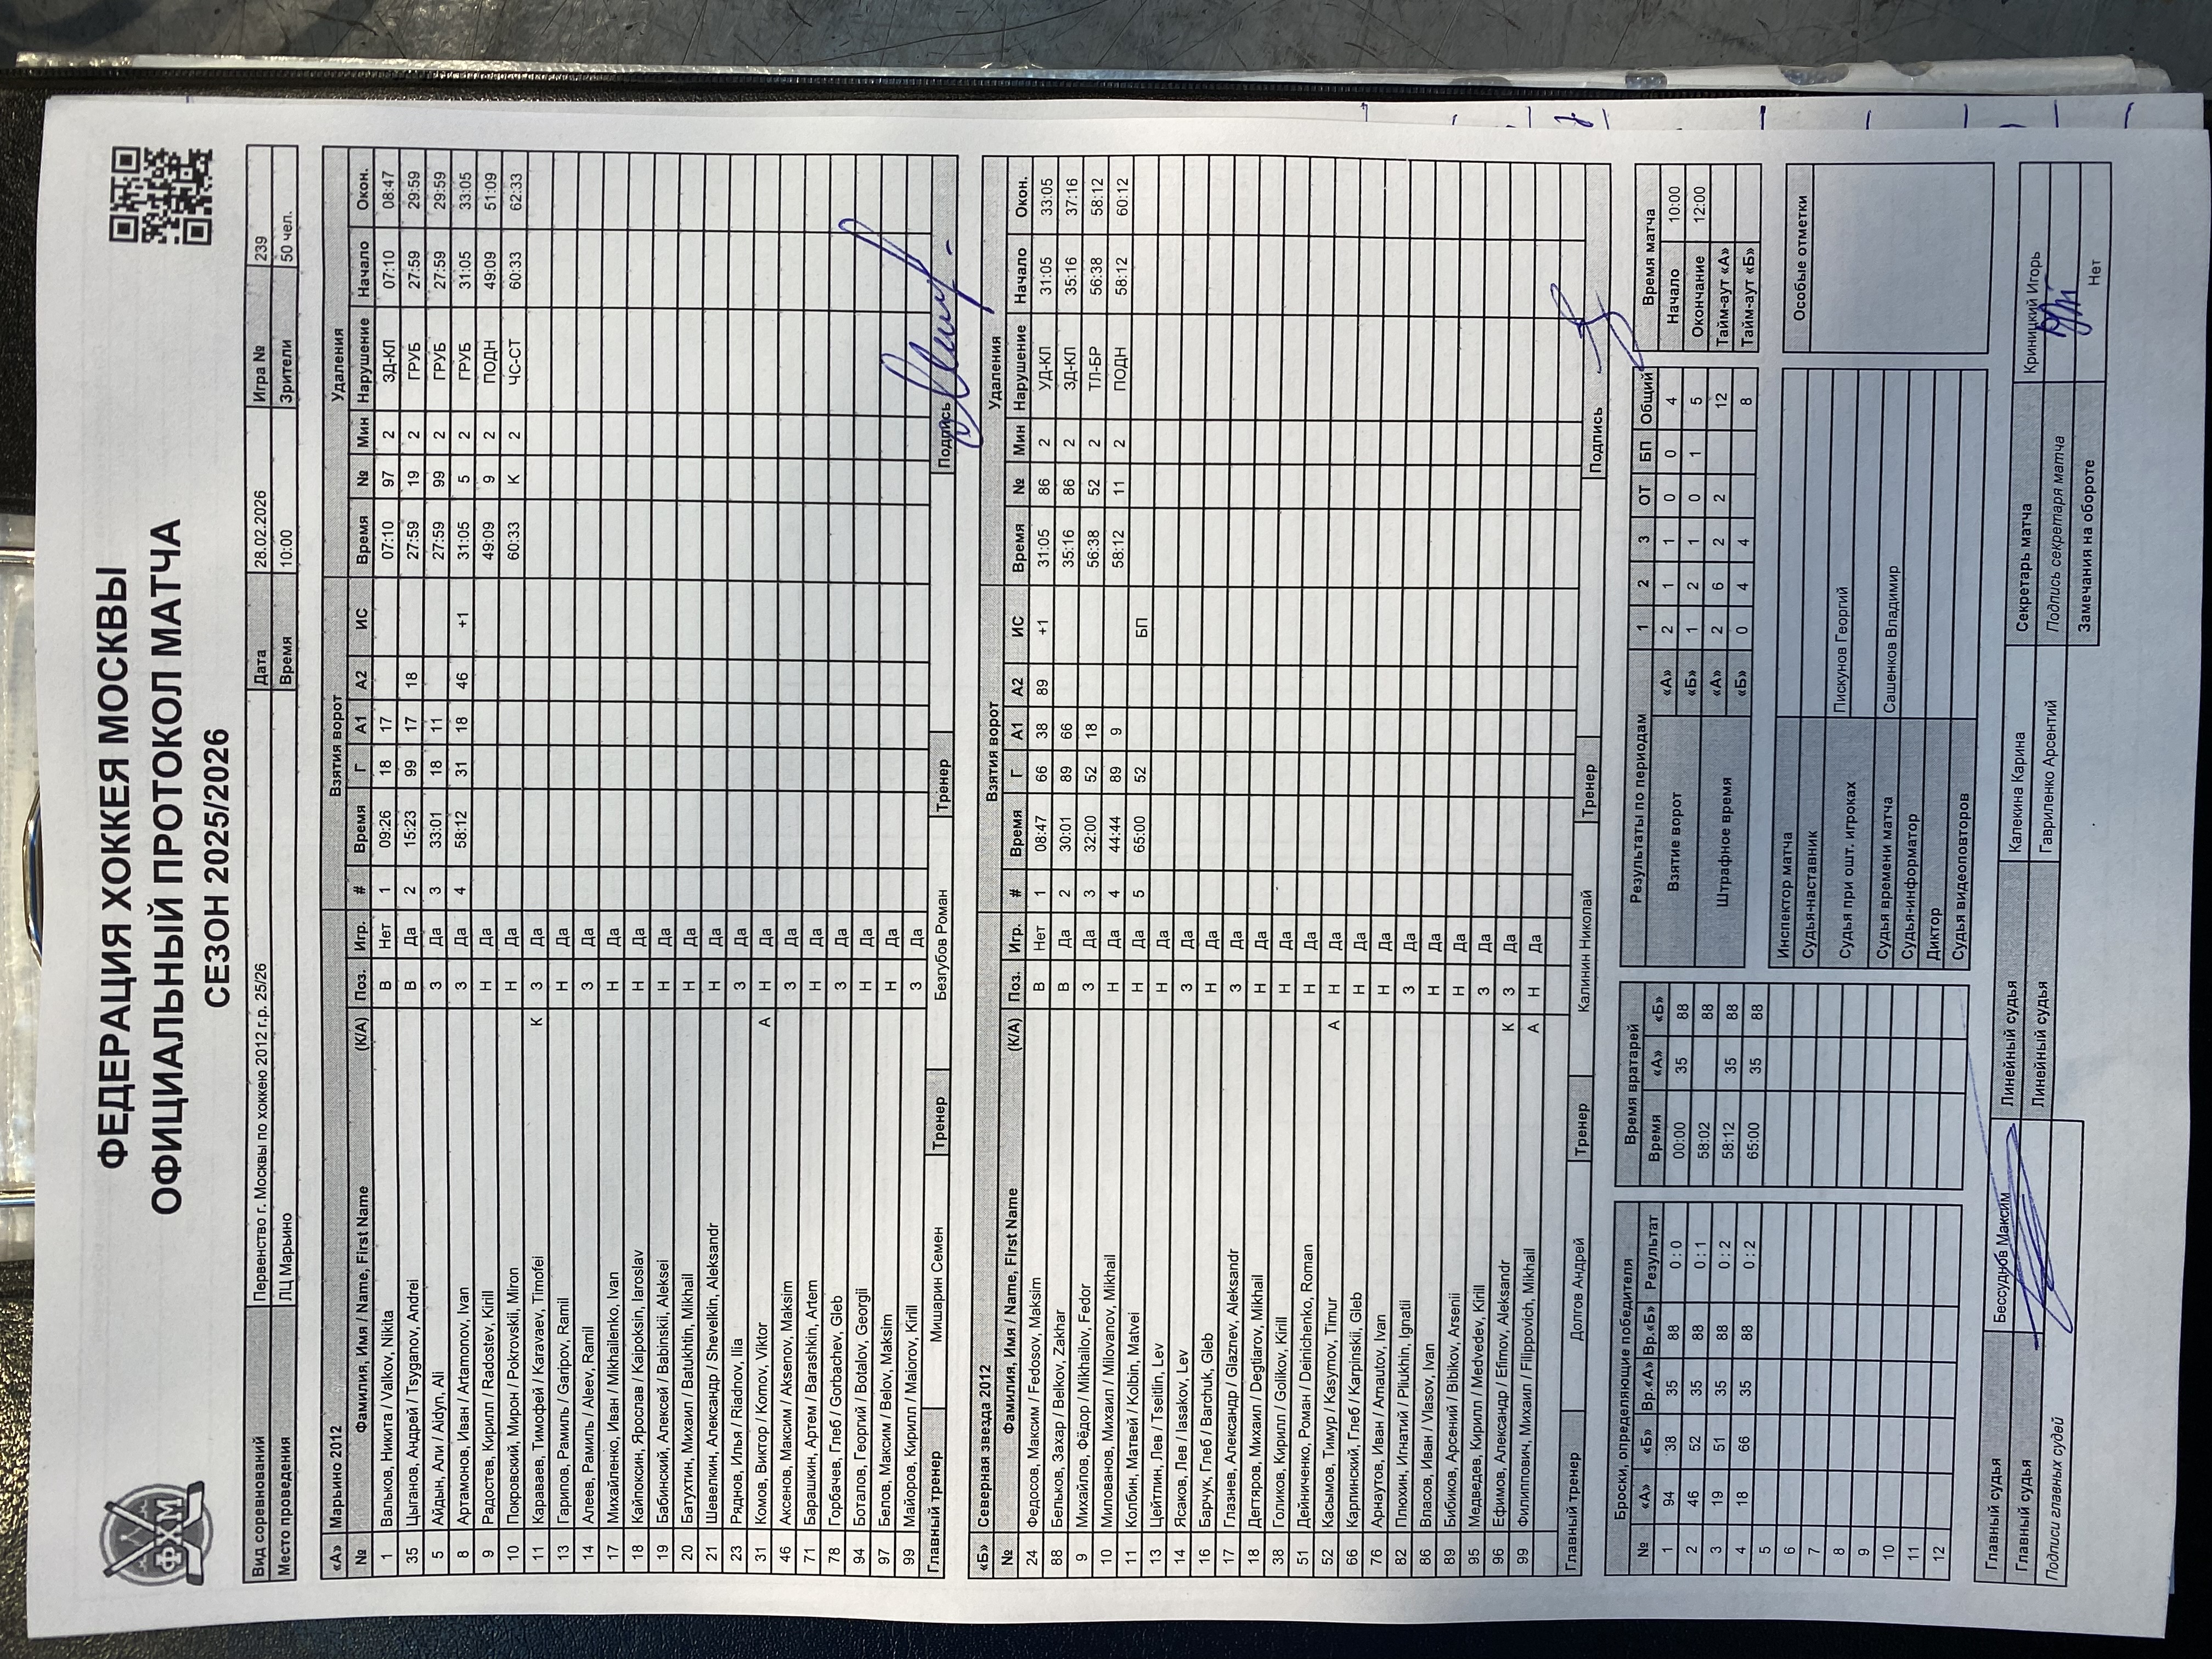 ФЕДЕРАЦИЯ ХОККЕЯ МОСКВЫ
ОФИЦИАЛЬНЫЙ ПРОТОКОЛ МАТЧА
СЕЗОН 2025/2026
ФХМ
Вид соревнований Первенство г. Москвы по хоккею 2012 г.р. 25/26 Дата 28.02.2026 Игра № 239
Место проведения ЛЦ Марьино Время 10:00 Зрители 50 чел.
«А» Марьино 2012 Взятия ворот Удаления
№ Фамилия, Имя / Name, First Name (К/А) Поз. Игр. # Время Г А1 А2 ИС Время № Мин Нарушение Начало Окон.
1 Вальков, Никита / Valkov, Nikita В Нет 1 09:26 18 17 07:10 97 2 ЗД-КЛ 07:10 08:47
35 Цыганов, Андрей / Tsyganov, Andrei В Да 2 15:23 99 17 18 27:59 19 2 ГРУБ 27:59 29:59
5 Айдын, Али / Aidyn, Ali З Да 3 33:01 18 11 27:59 99 2 ГРУБ 27:59 29:59
8 Артамонов, Иван / Artamonov, Ivan З Да 4 58:12 31 18 46 +1 31:05 5 2 ГРУБ 31:05 33:05
9 Радостев, Кирилл / Radostev, Kirill Н Да 49:09 9 2 ПОДН 49:09 51:09
10 Покровский, Мирон / Pokrovskii, Miron Н Да 60:33 К 2 ЧС-СТ 60:33 62:33
11 Караваев, Тимофей / Karavaev, Timofei К З Да
13 Гарипов, Рамиль / Garipov, Ramil Н Да
14 Алеев, Рамиль / Aleev, Ramil З Да
17 Михайленко, Иван / Mikhailenko, Ivan Н Да
18 Кайпоксин, Ярослав / Kaipoksin, Iaroslav Н Да
19 Бабинский, Алексей / Babinskii, Aleksei Н Да
20 Батухтин, Михаил / Batukhtin, Mikhail Н Да
21 Шевелкин, Александр / Shevelkin, Aleksandr Н Да
23 Ряднов, Илья / Riadnov, Ilia З Да
31 Комов, Виктор / Komov, Viktor А Н Да
46 Аксенов, Максим / Aksenov, Maksim З Да
71 Барашкин, Артем / Barashkin, Artem Н Да
78 Горбачев, Глеб / Gorbachev, Gleb З Да
94 Боталов, Георгий / Botalov, Georgii Н Да
97 Белов, Максим / Belov, Maksim Н Да
99 Майоров, Кирилл / Maiorov, Kirill З Да
Главный тренер Мишарин Семен Тренер Безгубов Роман Тренер Подпись
«Б» Северная звезда 2012 Взятия ворот Удаления
№ Фамилия, Имя / Name, First Name (К/А) Поз. Игр. # Время Г А1 А2 ИС Время № Мин Нарушение Начало Окон.
24 Федосов, Максим / Fedosov, Maksim В Нет 1 08:47 66 38 89 +1 31:05 86 2 УД-КЛ 31:05 33:05
88 Бельков, Захар / Belkov, Zakhar В Да 2 30:01 89 66 35:16 86 2 ЗД-КЛ 35:16 37:16
9 Михайлов, Фёдор / Mikhailov, Fedor З Да 3 32:00 52 18 56:38 52 2 ТЛ-БР 56:38 58:12
10 Милованов, Михаил / Milovanov, Mikhail Н Да 4 44:44 89 9 58:12 11 2 ПОДН 58:12 60:12
11 Колбин, Матвей / Kolbin, Matvei Н Да 5 65:00 52 БП
13 Цейтлин, Лев / Tseitlin, Lev Н Да
14 Ясаков, Лев / Iasakov, Lev З Да
16 Барчук, Глеб / Barchuk, Gleb Н Да
17 Глазнев, Александр / Glaznev, Aleksandr З Да
18 Дегтяров, Михаил / Degtiarov, Mikhail Н Да
38 Голиков, Кирилл / Golikov, Kirill Н Да
51 Дейниченко, Роман / Deinichenko, Roman Н Да
52 Касымов, Тимур / Kasymov, Timur А Н Да
66 Карпинский, Глеб / Karpinskii, Gleb Н Да
76 Арнаутов, Иван / Arnautov, Ivan Н Да
82 Плюхин, Игнатий / Pliukhin, Ignatii З Да
86 Власов, Иван / Vlasov, Ivan Н Да
89 Бибиков, Арсений / Bibikov, Arsenii Н Да
95 Медведев, Кирилл / Medvedev, Kirill З Да
96 Ефимов, Александр / Efimov, Aleksandr К З Да
99 Филиппович, Михаил / Filippovich, Mikhail А Н Да
Главный тренер Долгов Андрей Тренер Калинин Николай Тренер Подпись
Броски, определяющие победителя
№ «А» «Б» Вр.«А» Вр.«Б» Результат
1 94 38 35 88 0 : 0
2 46 52 35 88 0 : 1
3 19 51 35 88 0 : 2
4 18 66 35 88 0 : 2
5
6
7
8
9
10
11
12
Время вратарей
Время «А» «Б»
00:00 35 88
58:02 88
58:12 35 88
65:00 35 88
Результаты по периодам 1 2 3 ОТ БП Общий
Взятие ворот «А» 2 1 1 0 0 4
«Б» 1 2 1 0 1 5
Штрафное время «А» 2 6 2 2 12
«Б» 0 4 4 8
Время матча
Начало 10:00
Окончание 12:00
Тайм-аут «А»
Тайм-аут «Б»
Инспектор матча
Судья-наставник
Судья при ошт. игроках Пискунов Георгий
Судья времени матча Сашенков Владимир
Судья-информатор
Диктор
Судья видеоповторов
Особые отметки
Главный судья Бессуднов Максим Линейный судья Калекина Карина Секретарь матча Криницкий Игорь
Главный судья Линейный судья Гавриленко Арсентий Подпись секретаря матча
Подписи главных судей Замечания на обороте Нет